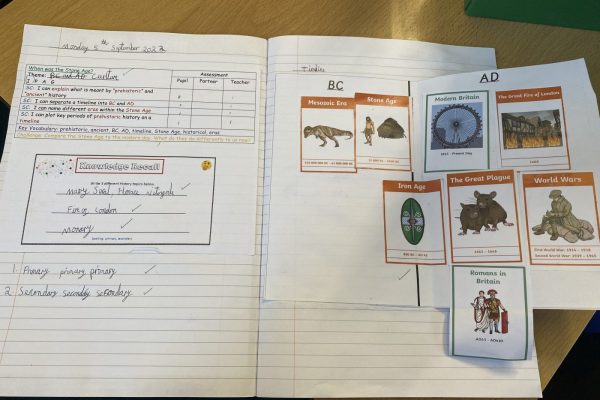 Monday 5th September 202
When was the Stone Age?
Theme:
SC: I can explain what is meant by "prehistoric" and "ancient" history
SC: I can separate a timeline into BC and AD
SC: I can name different eras within the Stone Age
SC: I can plot key periods of prehistory on a timeline
Assessment
Pupil Partner Teacher
Key Vocabulary: prehistoric, ancient, BC, AD, timeline, Stone Age, historical, eras
Challenge: Compare the Stone Age to the modern day. What do they do differently to us now?
Knowledge Recall
Mary Seol, Florence
Fire of London
1. Primary primary primary
2. Secondary secondary secondary
BC
Mesozoic Era
Stone Age
Iron Age
AD
Modern Britain
- Present Day
The Great Fire of London
1666
The Great Plague
1665 - 1666
World Wars
First World War: 1914 - 1918
Second World War: 1939 - 1945
Romans in
Britain